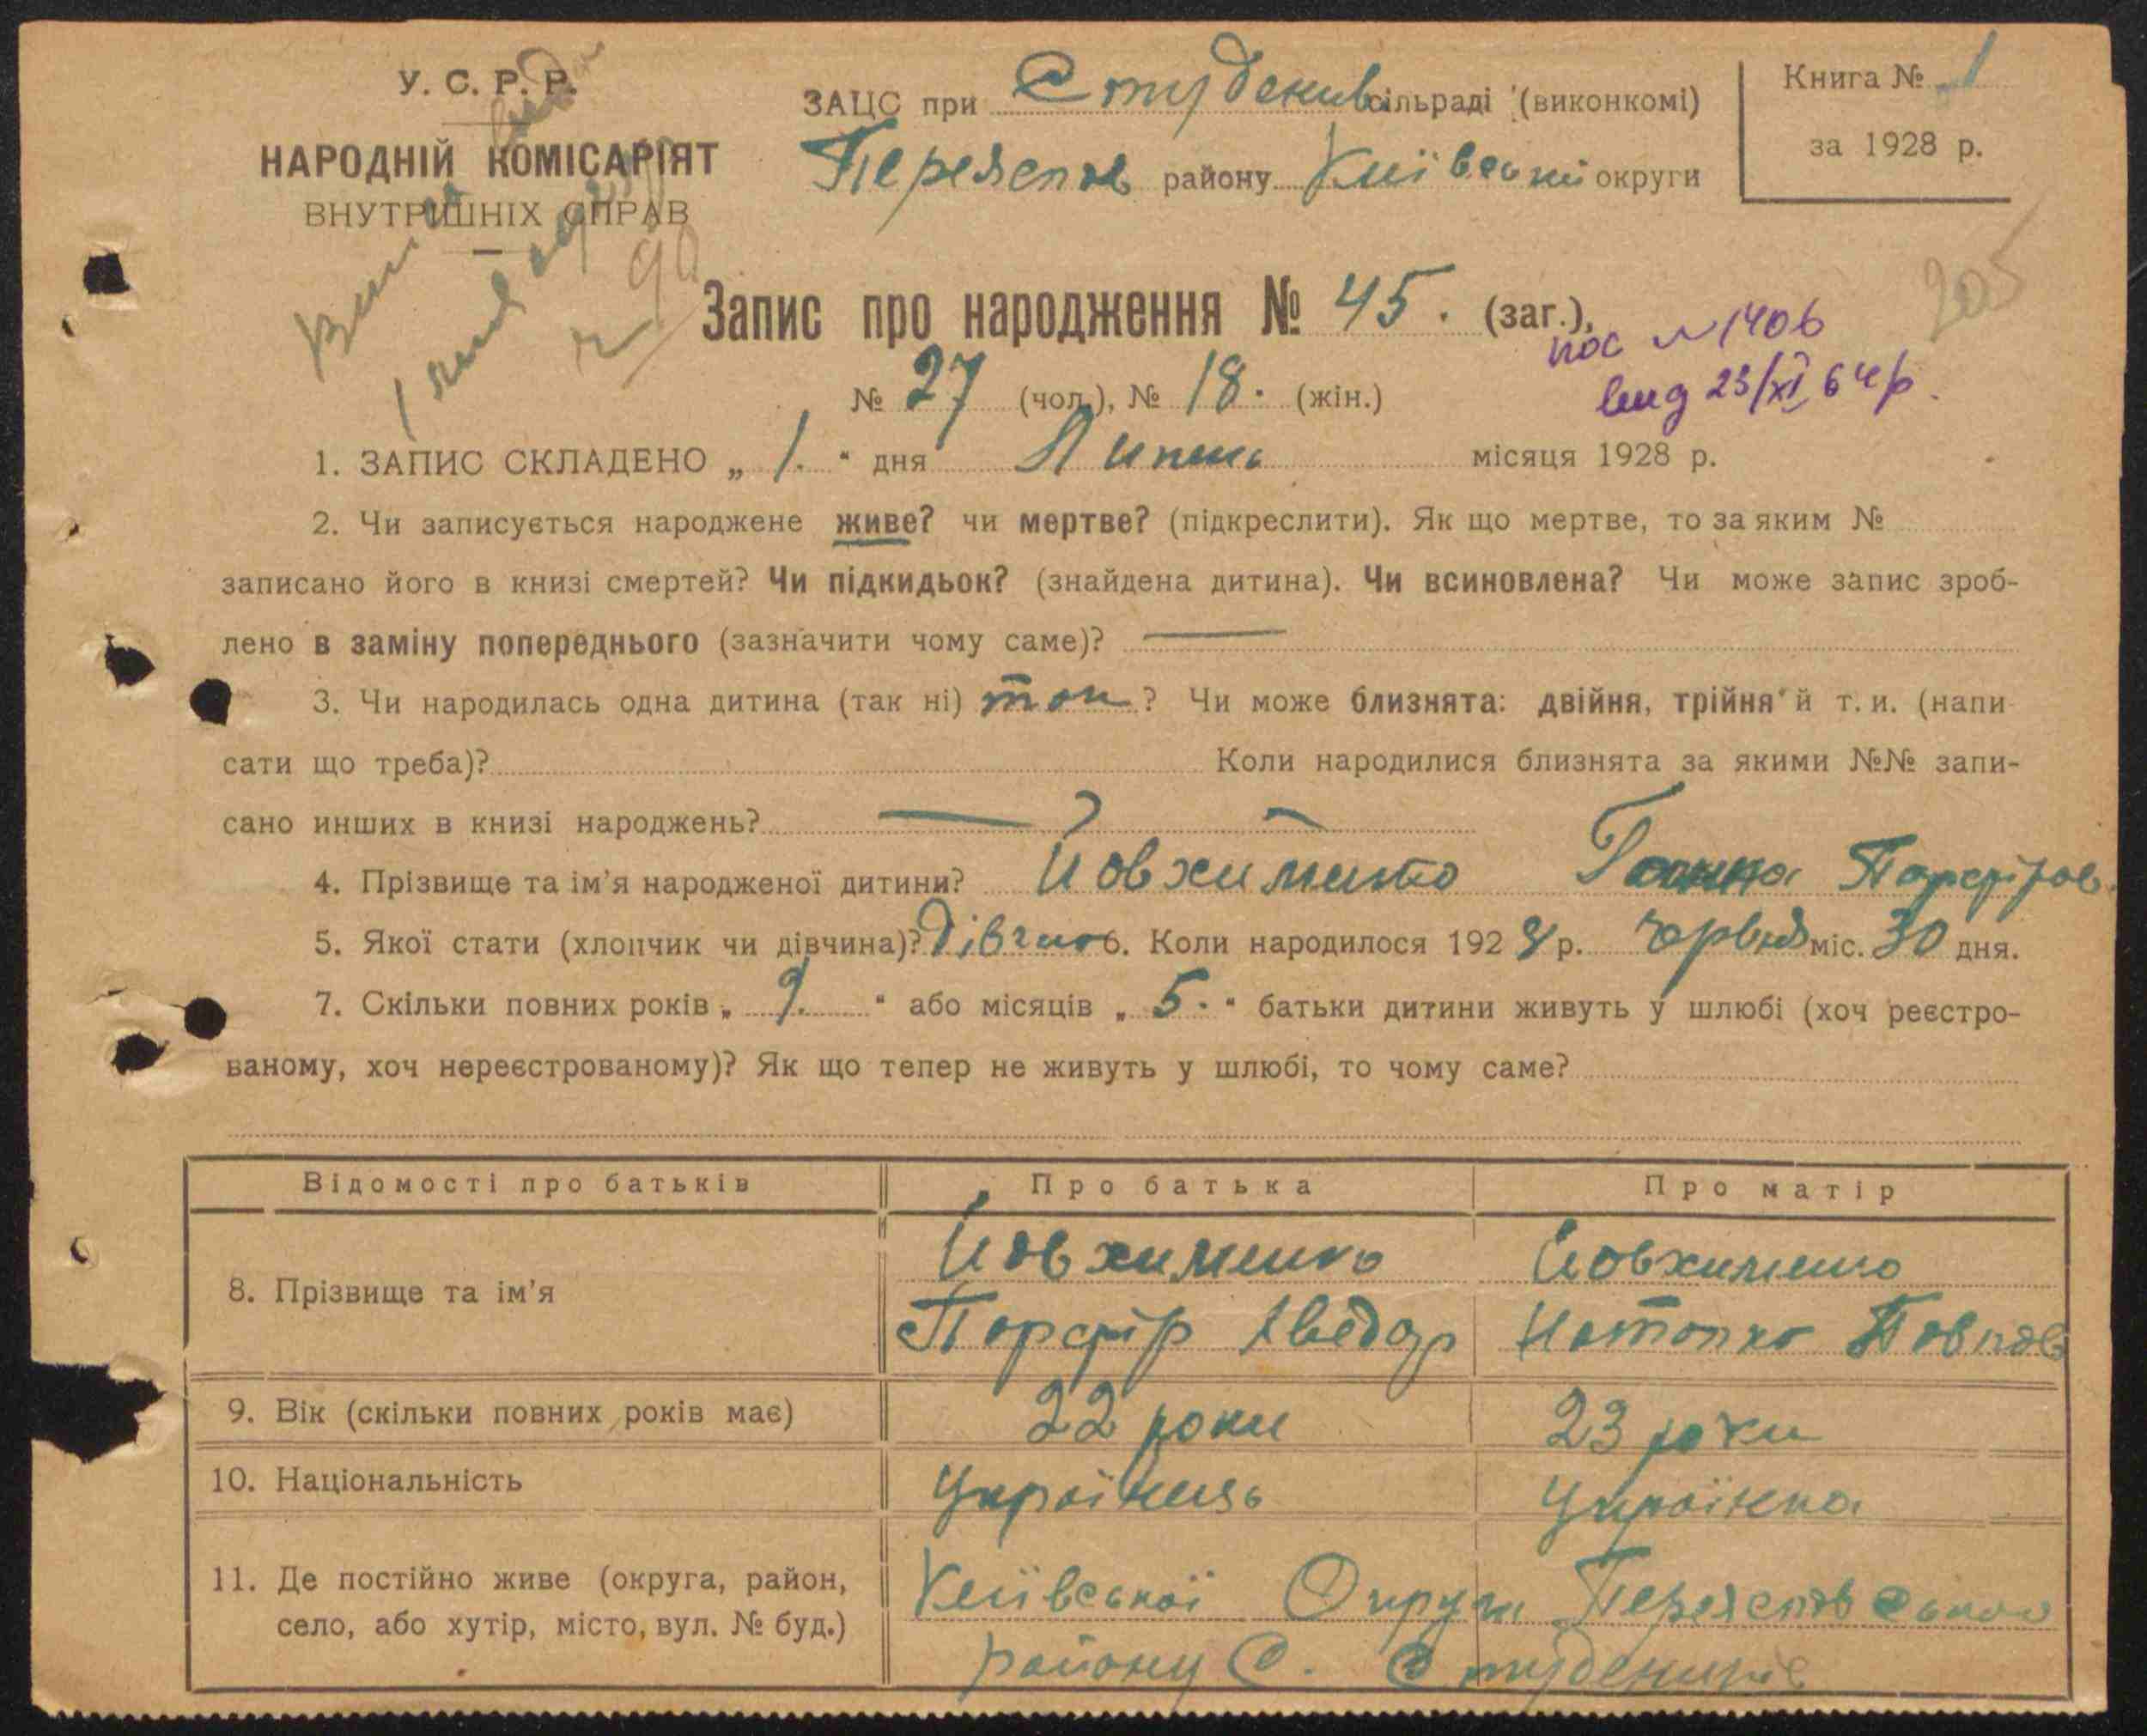 У. С. Р. Р.
НАРОДНІЙ КОМІСАРІЯТ
ВНУТРІШНІХ СПРАВ
ЗАЦС при Студенив сільраді (виконкомі)
Переяслов району Київської округи
Книга № 1
за 1928 р.
205
Запис про народження № 45. (заг.),
№ 27 (чол.), № 18. (жін.)
пос №1406
вид 23/XI 64р.
1. ЗАПИС СКЛАДЕНО „ 1. “ дня Липень місяця 1928 р.
2. Чи записується народжене живе? чи мертве? (підкреслити). Як що мертве, то за яким №
записано його в книзі смертей? Чи підкидьок? (знайдена дитина). Чи всиновлена? Чи може запис зроб-
лено в заміну попереднього (зазначити чому саме)? —
3. Чи народилась одна дитина (так ні) так ? Чи може близнята: двійня, трійня й т. и. (напи
сати що треба)? Коли народилися близнята за якими №№ запи-
сано инших в книзі народжень? —
4. Прізвище та ім'я народженої дитини? Йовхименко Ганна Парфіров.
5. Якої стати (хлопчик чи дівчина)? Дівчин 6. Коли народилося 1928 р. червня міс. 30 дня.
7. Скільки повних років „ 9. “ або місяців „ 5. “ батьки дитини живуть у шлюбі (хоч реєстро-
ваному, хоч нереєстрованому)? Як що тепер не живуть у шлюбі, то чому саме?
Відомості про батьків Про батька Про матір
8. Прізвище та ім'я Йовхименко Йовхименко
Парфір Хведор Наталка Павлов
9. Вік (скільки повних років має) 22 роки 23 роки
10. Національність Українець Українка
11. Де постійно живе (округа, район, Київської Округи Переяславського
село, або хутір, місто, вул. № буд.) району С. Студеники